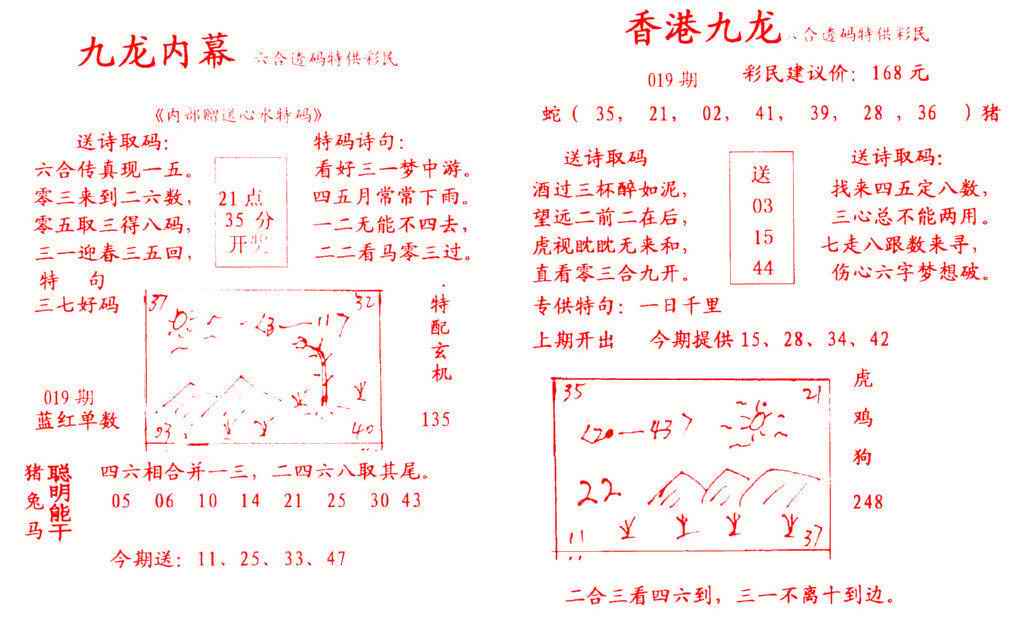 九龙内幕 六合透码特供彩民
《内部赠送心水特码》
送诗取码：
六合传真现一五。
零三来到二六数，
零五取三得八码，
三一迎春三五回，
特 句
三七好码
21点
35分
开奖
特码诗句：
看好三一梦中游。
四五月常常下雨。
一二无能不四去，
二二看马零三过。
37
32
13—11
93
40
特配玄机
135
019期
蓝红单数
猪兔马
聪明能干
四六相合并一三，二四六八取其尾。
05 06 10 14 21 25 30 43
今期送：11、25、33、47
香港九龙 六合透码特供彩民
019期 彩民建议价：168元
蛇（ 35， 21， 02， 41， 39， 28 ，36 ）猪
送诗取码
酒过三杯醉如泥，
望远二前二在后，
虎视眈眈无来和，
直看零三合九开。
送
03
15
44
送诗取码：
找来四五定八数，
三心总不能两用。
七走八跟数来寻，
伤心六字梦想破。
专供特句：一日千里
上期开出 今期提供15、28、34、42
35
21
20—43
22
11
37
虎
鸡
狗
248
二合三看四六到，三一不离十到边。